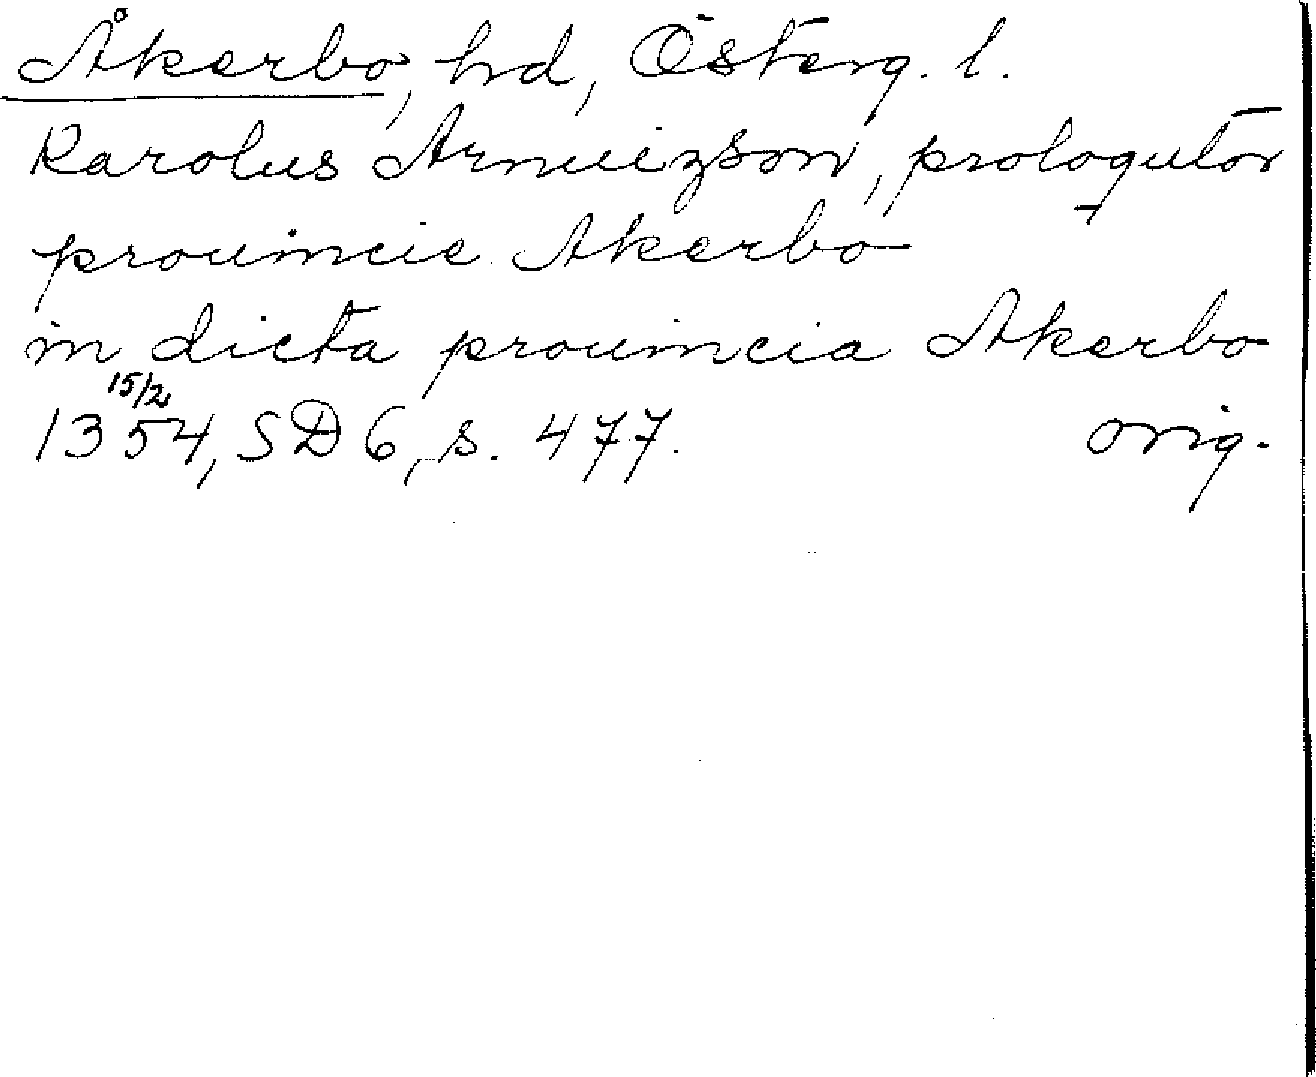 Åkerbo, hd, Österg. l.
Karolus Arnuizson, prologutor
prouincie Akerbo
in dicta prouincia Akerbo
1354, 15/2 SD 6, s. 477. orig.